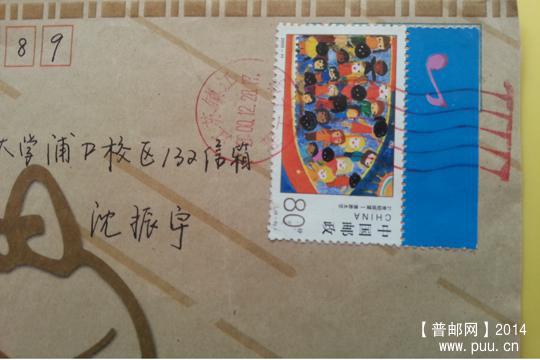 8 9
大学浦口校区132信箱
沈振宇
80分
中国邮政
CHINA
【普邮网】2014
www.puu.cn